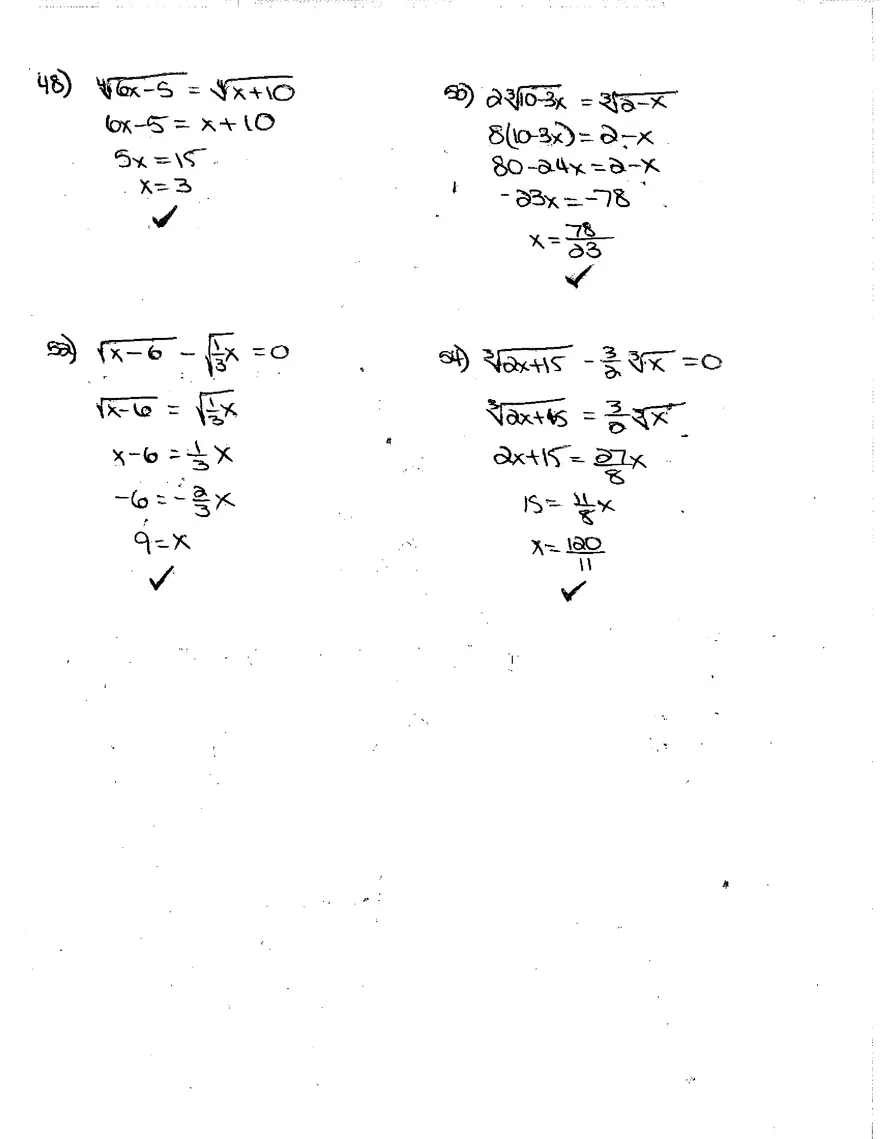 48) ∜(6x-5) = ∜(x+10)
6x-5 = x+10
5x = 15
x = 3
✓
50) 2∛(10-3x) = ∛(2-x)
8(10-3x) = 2-x
80-24x = 2-x
-23x = -78
x = 78/23
✓
52) √(x-6) - √(1/3 x) = 0
√(x-6) = √(1/3 x)
x-6 = 1/3 x
-6 = -2/3 x
9 = x
✓
54) ∛(2x+15) - 3/2 ∛x = 0
∛(2x+15) = 3/2 ∛x
2x+15 = 27/8 x
15 = 11/8 x
x = 120/11
✓